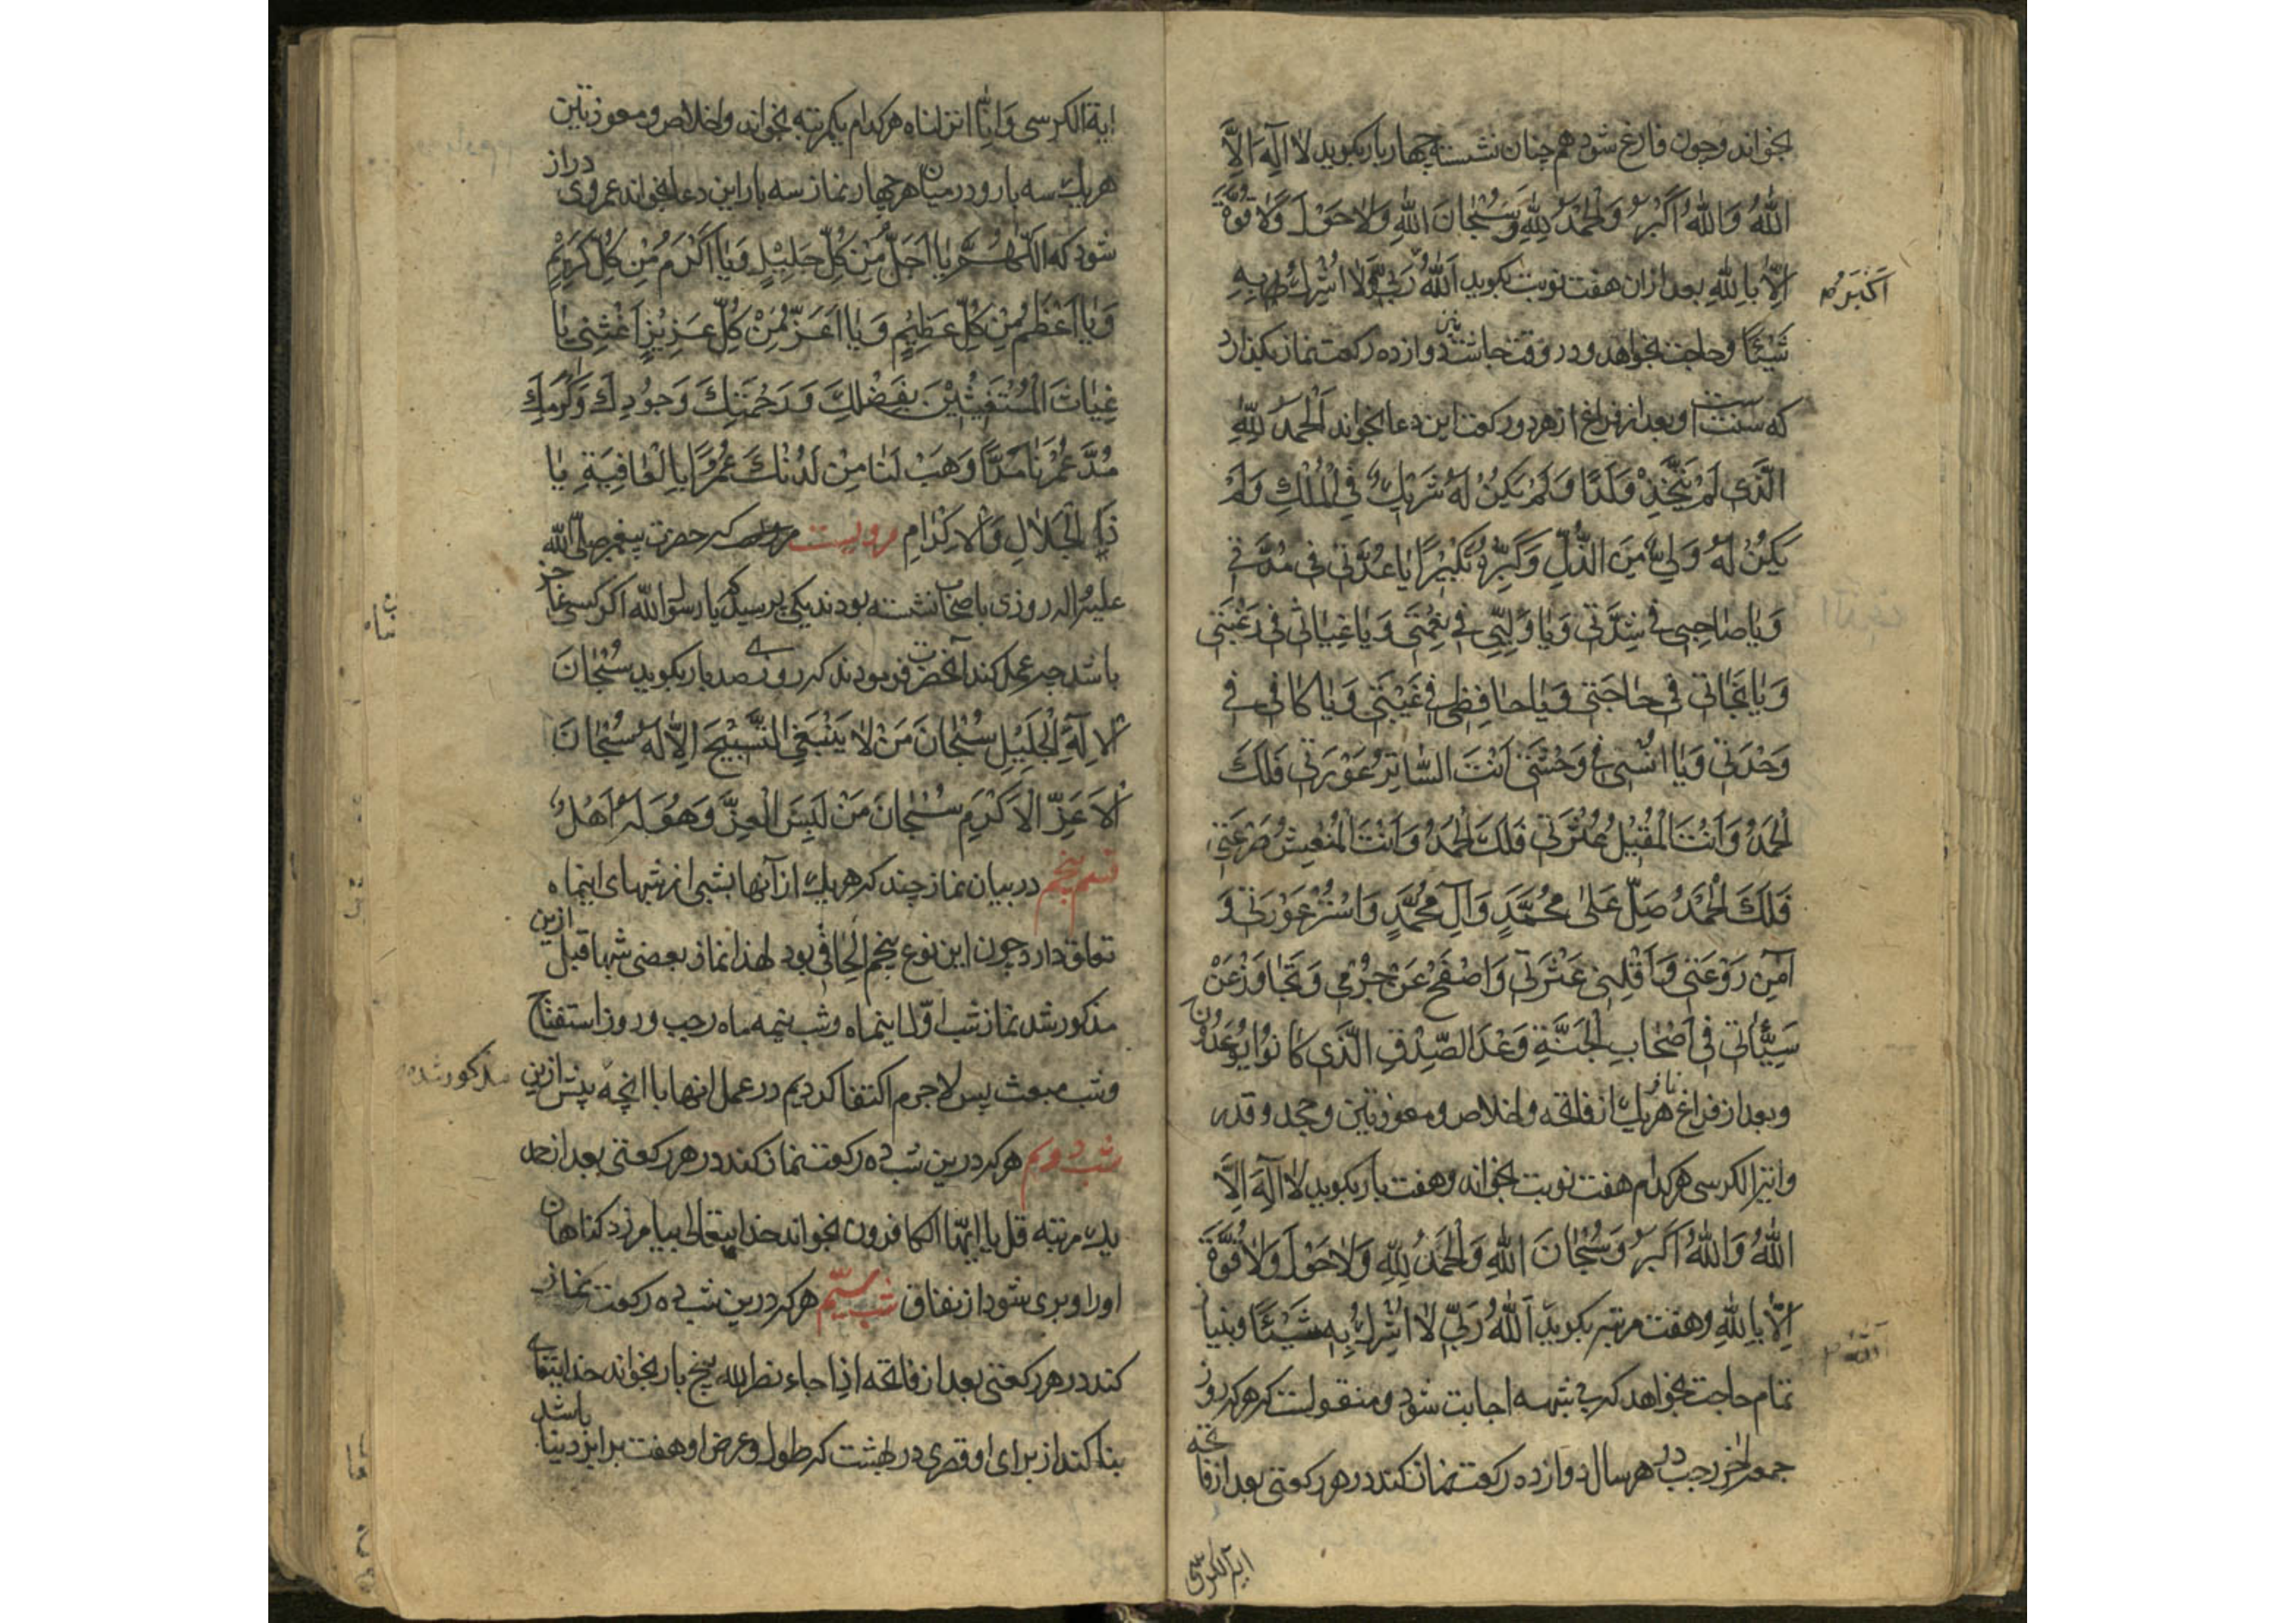 بخواند وچون فارغ شود هم چنان نشسته چهار بار بکوید لا اله الا
اللهُ وَاللهُ اَکْبَرُ وَالْحَمْدُ لِلّهِ وَسُبْحانَ اللهِ وَلاحَوْلَ وَلا قُوَّةَ
اِلّا بِاللهِ بعد ازان هفت نوبت بکوید اَللهُ رَبّی وَلا اُشْرِكُ بِهِ
اکبر
شَیْئًا وحاجت بخواهد ودر وقت چاشت دوازده رکعت نماز بکذارد
که سنت است وبعد از فراغ از هر دو رکعت این دعا بخواند اَلْحَمْدُ لِلّهِ
الَّذی لَمْ یَتَّخِذْ وَلَدًا وَلَمْ یَکُنْ لَهُ شَریكٌ فِی الْمُلْكِ وَلَمْ
یَکُنْ لَهُ وَلِیٌّ مِنَ الذُّلِّ وَکَبِّرْهُ تَکْبیرًا یا عُدَّتی فی مُدَّتی
وَیا صاحِبی فی شِدَّتی وَیا وَلِیّی فی نِعْمَتی وَیا غِیاثی فی رَغْبَتی
وَیا نَجاتی فی حاجَتی وَیا حافِظی فی غَیْبَتی وَیا کافی فی
وَحْدَتی وَیا اُنْسی فی وَحْشَتی اَنْتَ السّاتِرُ عَوْرَتی فَلَكَ
الْحَمْدُ وَاَنْتَ الْمُقیلُ عَثْرَتی فَلَكَ الْحَمْدُ وَاَنْتَ الْمُنْعِشُ صَرْعَتی
فَلَكَ الْحَمْدُ صَلِّ عَلی مُحَمَّدٍ وَآلِ مُحَمَّدٍ وَاسْتُرْ عَوْرَتی وَ
آمِنْ رَوْعَتی وَاَقِلْنی عَثْرَتی وَاصْفَحْ عَنْ جُرْمی وَتَجاوَزْ عَنْ
سَیِّئاتی فی اَصْحابِ الْجَنَّةِ وَعْدَ الصِّدْقِ الَّذی کانُوا یُوعَدُونَ
وبعد از فراغ نماز هر یك از فاتحه واخلاص ومعوذتین وجحد وقدر
وایة الکرسی هر کدام هفت نوبت بخواند وهفت بار بکوید لا اله الا
اللهُ وَاللهُ اَکْبَرُ وَسُبْحانَ اللهِ وَالْحَمْدُ لِلّهِ وَلاحَوْلَ وَلا قُوَّةَ
اِلّا بِاللهِ وهفت مرتبه بکوید اَللهُ رَبّی لا اُشْرِكُ بِهِ شَیْئًا وبنیاز
الله
تمام حاجت بخواهد که بی شبهه اجابت شود ومنقولست که هر که روز
جمعه اخر رجب در هر سال دوازده رکعت نماز کند در هر رکعتی بعد از فاتحه
ایة الکرسی
ایة الکرسی وانا انزلناه هر کدام یکمرتبه بخواند واخلاص ومعوذتین
هر یك سه بار ودر میان هر چهار نماز سه بار این دعا بخواند عمر وی دراز
شود که اَللّهُمَّ یا اَجَلَّ مِنْ کُلِّ جَلیلٍ وَیا اَکْرَمَ مِنْ کُلِّ کَریمٍ
وَیا اَعْظَمَ مِنْ کُلِّ عَظیمٍ وَیا اَعَزَّ مِنْ کُلِّ عَزیزٍ اَغِثْنی یا
غِیاثَ الْمُسْتَغیثینَ بِفَضْلِكَ وَرَحْمَتِكَ وَجُودِكَ وَکَرَمِكَ
مُدَّ عُمْرَنا مَدًّا وَهَبْ لَنا مِنْ لَدُنْكَ عُمُرًا بِالْعافِیَةِ یا
ذَا الْجَلالِ وَالْاِکْرامِ مرویست که حضرت پیغمبر صلی الله
علیه واله روزی با صحابه نشسته بودند یکی پرسید که یا رسول الله اکر کسی عاجز
باشد چه عمل کند آنحضرت فرمودند که روزی صد بار بکوید سُبْحانَ
الْاِلهِ الْجَلیلِ سُبْحانَ مَنْ لا یَنْبَغِی التَّسْبیحُ اِلّا لَهُ سُبْحانَ
الْاَعَزِّ الْاَکْرَمِ سُبْحانَ مَنْ لَبِسَ الْعِزَّ وَهُوَ لَهُ اَهْلٌ
قسم پنجم در بیان نماز چند که هر یك از آنها بشبی از شبهای اینماه
تعلق دارد چون این نوع پنجم الحاقی بود لهذا نماز بعضی شبها قبل ازین
مذکور شد نماز شب اول اینماه وشب نیمه ماه رجب وروز استفتاح
وشب مبعث پس لاجرم اکتفا کردیم در عمل انها با انچه پیش ازین مذکور شده
شب دویم هر که درین شب ده رکعت نماز کند در هر رکعتی بعد از حمد
یك مرتبه قل یا ایها الکافرون بخواند خدایتعالی بیامرزد کناهان
اورا وبری شود از نفاق شب سیّم هر که درین شب ده رکعت نماز
کند در هر رکعتی بعد از فاتحه اذا جاء نصر الله پنج بار بخواند خدایتعالی
بنا کند از برای او قصری در بهشت که طول وعرض او هفت برابر دنیا باشد